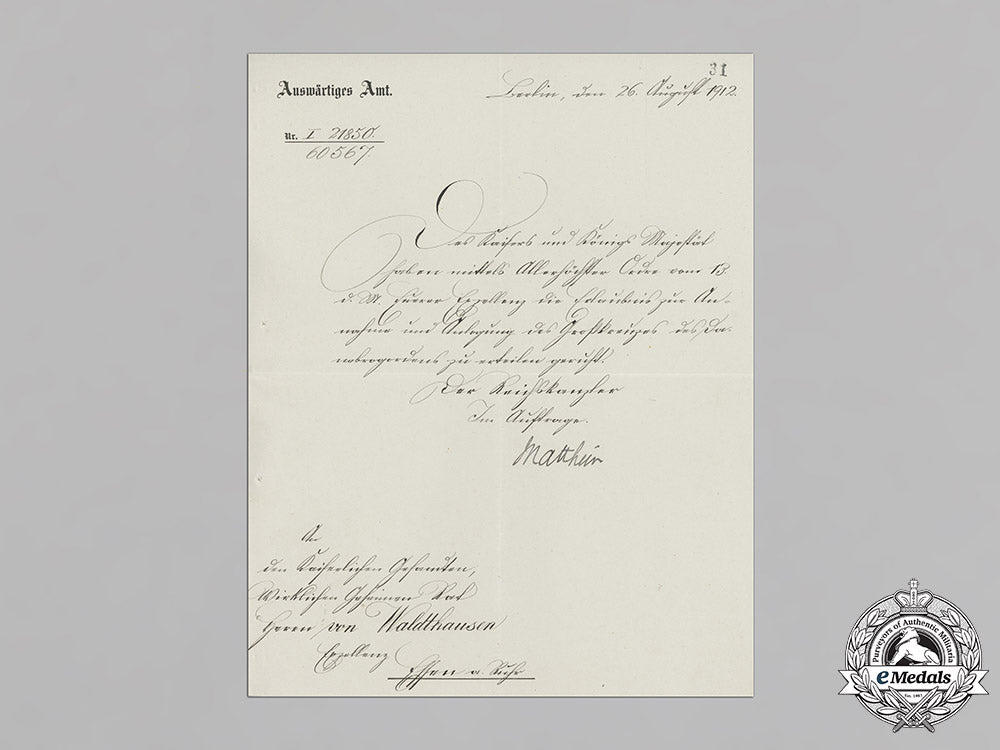 31
Auswärtiges Amt.
Berlin, den 26. August 1912.
Nr. I 21850.
60567.
Des Kaisers und Königs Majestät
haben mittels Allerhöchster Order vom 13.
d. Mt. Euerer Exzellenz die Erlaubnis zur An-
nahme und Anlegung des Großkreuzes des Da-
nebrogordens zu erteilen geruht.
Der Reichskanzler
Im Auftrage.
An
den Kaiserlichen Gesandten,
Wirklichen Geheimen Rat
Herrn von Waldthausen
Exzellenz
Essen a. Ruhr
Purveyors of Authentic Militaria
eMedals